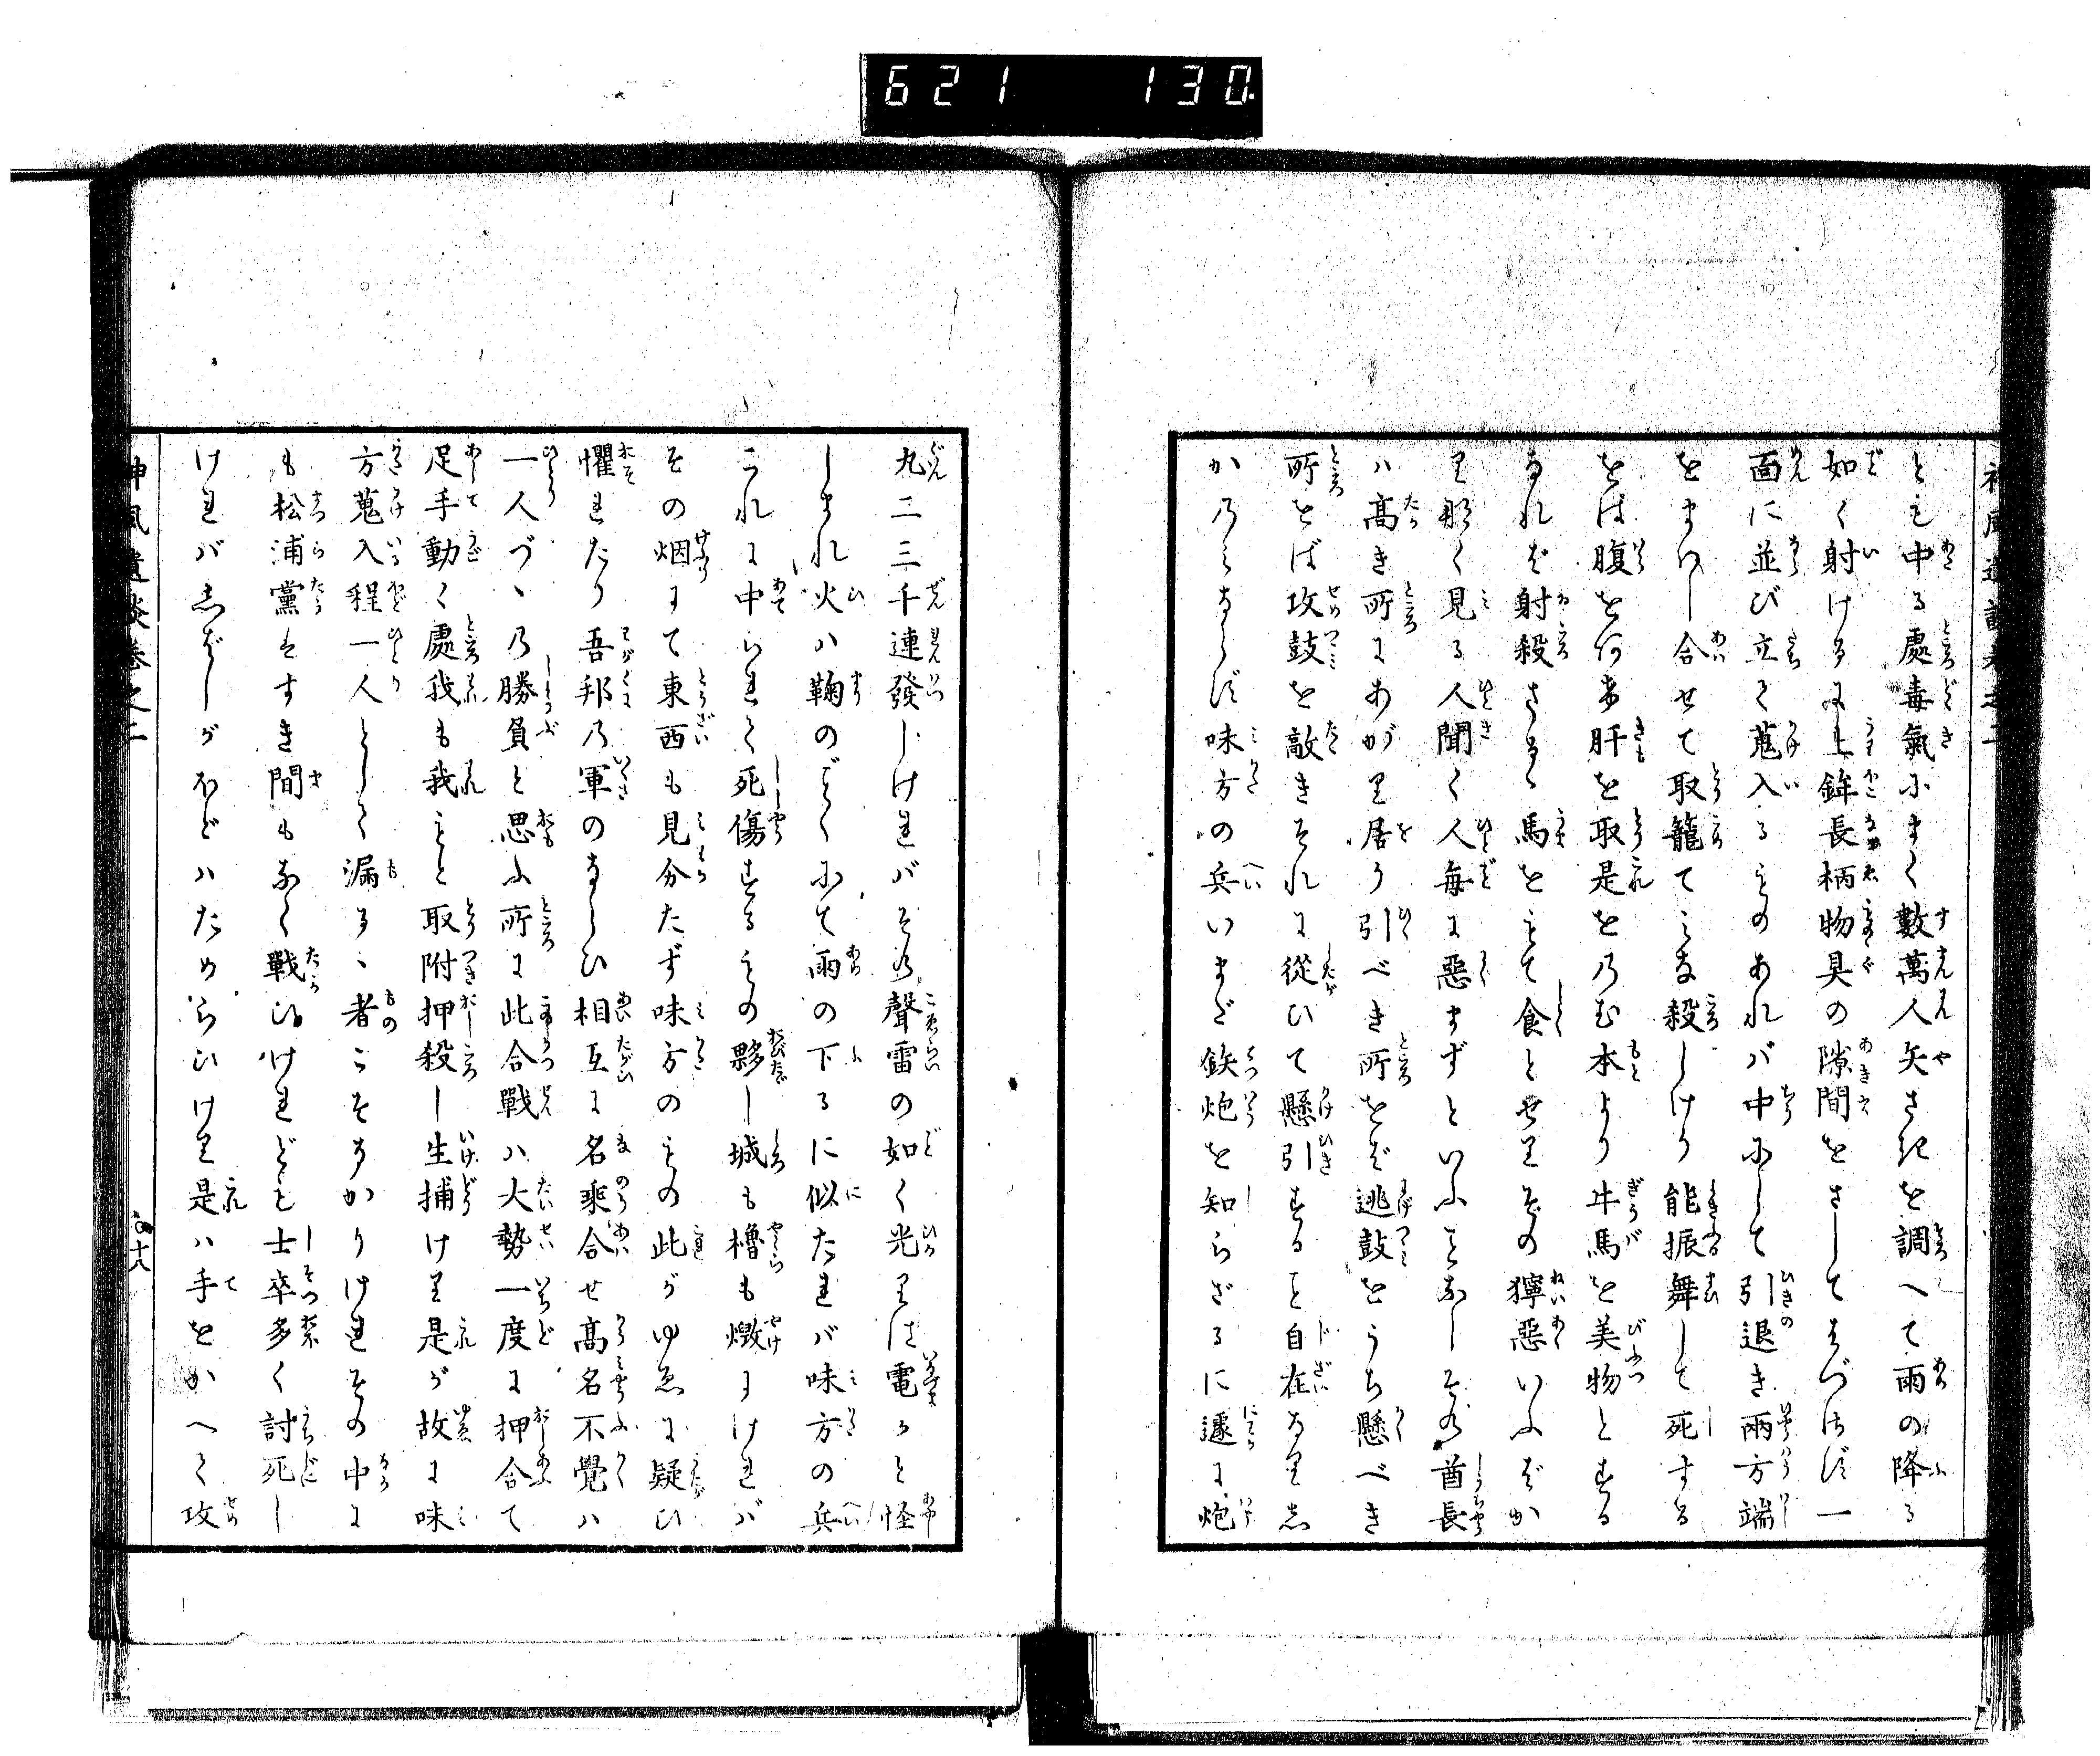 621 130
とも中る處毒氣にまく數萬人矢さきを調へて雨の降る
如く射ける上鉾長柄物具の隙間をさしてはづさず一
面に並び立て蒐入るものあれバ中にして引退き兩方端
をまはし合せて取籠てみな殺しけり能振舞して死する
をば腹をあけ肝を取是をのむ本より牛馬を美物とする
なれば射殺さるゝ馬をもて食とせりその獰惡いふばか
り那く見る人聞く人毎に惡まずといふことなしその酋長
ハ高き所にあがり居り引べき所をば逃鼓をうち懸べき
所をば攻鼓を敲きそれに從ひて懸引すること自在なり志
かのみならず味方の兵いまだ鉄炮を知らざるに遽に炮
丸二三千連發しけれバその聲雷の如く光りは電かと怪
しまれ火ハ鞠のごとくにて雨の下るに似たれバ味方の兵
これに中られて死傷するもの夥し城も櫓も燬にけれバ
その烟にて東西も見分たず味方のもの此がゆゑに疑ひ
懼れたり吾邦の軍のならひ相互に名乗合せ高名不覺ハ
一人づゝの勝負と思ふ所に此合戰ハ大勢一度に押合て
足手動く處我も我もと取附押殺し生捕けり是が故に味
方蒐入程一人として漏るゝ者こそなかりけれその中に
も松浦黨はすき間もなく戰ひけれども士卒多く討死し
けれバ志ばしがほどハためらひけり是ハ手をかへて攻
神風遺談卷之二
十八